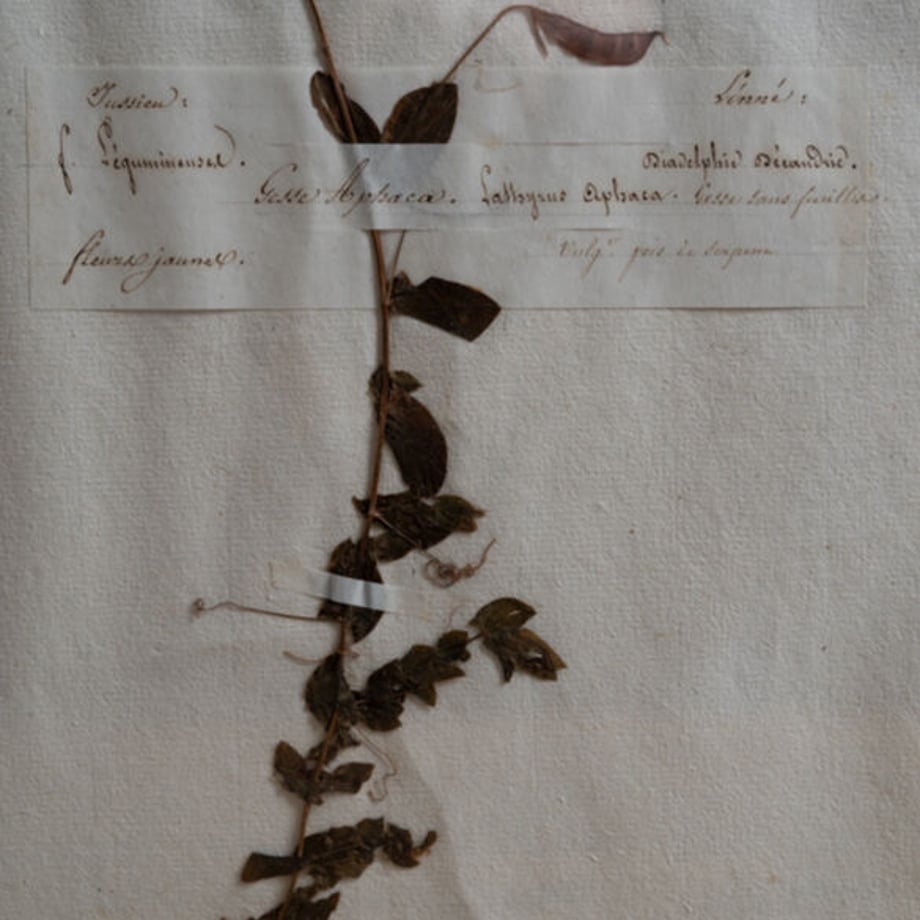 Jussieu : Linné :
f. Légumineuses. Diadelphie Décandrie.
Gesse Aphaca. Lathyrus Aphaca. Gesse sans feuilles.
fleurs jaunes. Vulg. pois de serpent